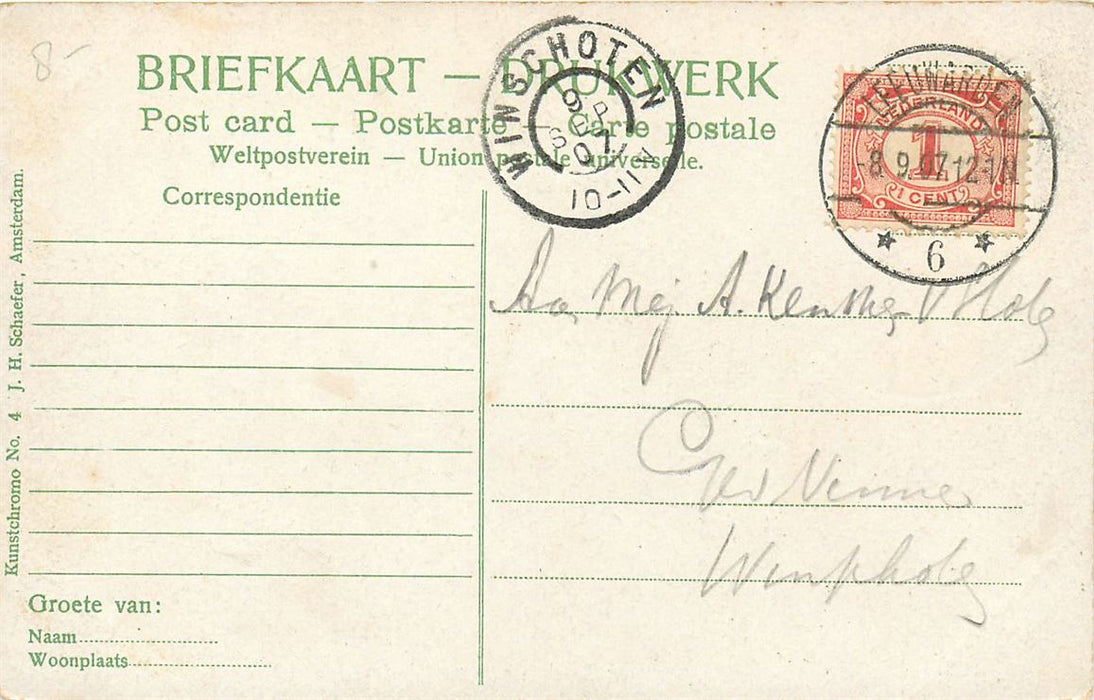 8-
BRIEFKAART — DRUKWERK
Post card — Postkarte — Carte postale
Weltpostverein — Union postale universelle.
WINSCHOTEN
9 SEP 07
10-11 V
LEEUWARDEN
-8.9.07.12-1N.
6
NEDERLAND
1
1 CENT
Correspondentie
Kunstchromo No. 4 J. H. Schaefer, Amsterdam.
Groete van:
Naam
Woonplaats
Mej. A.